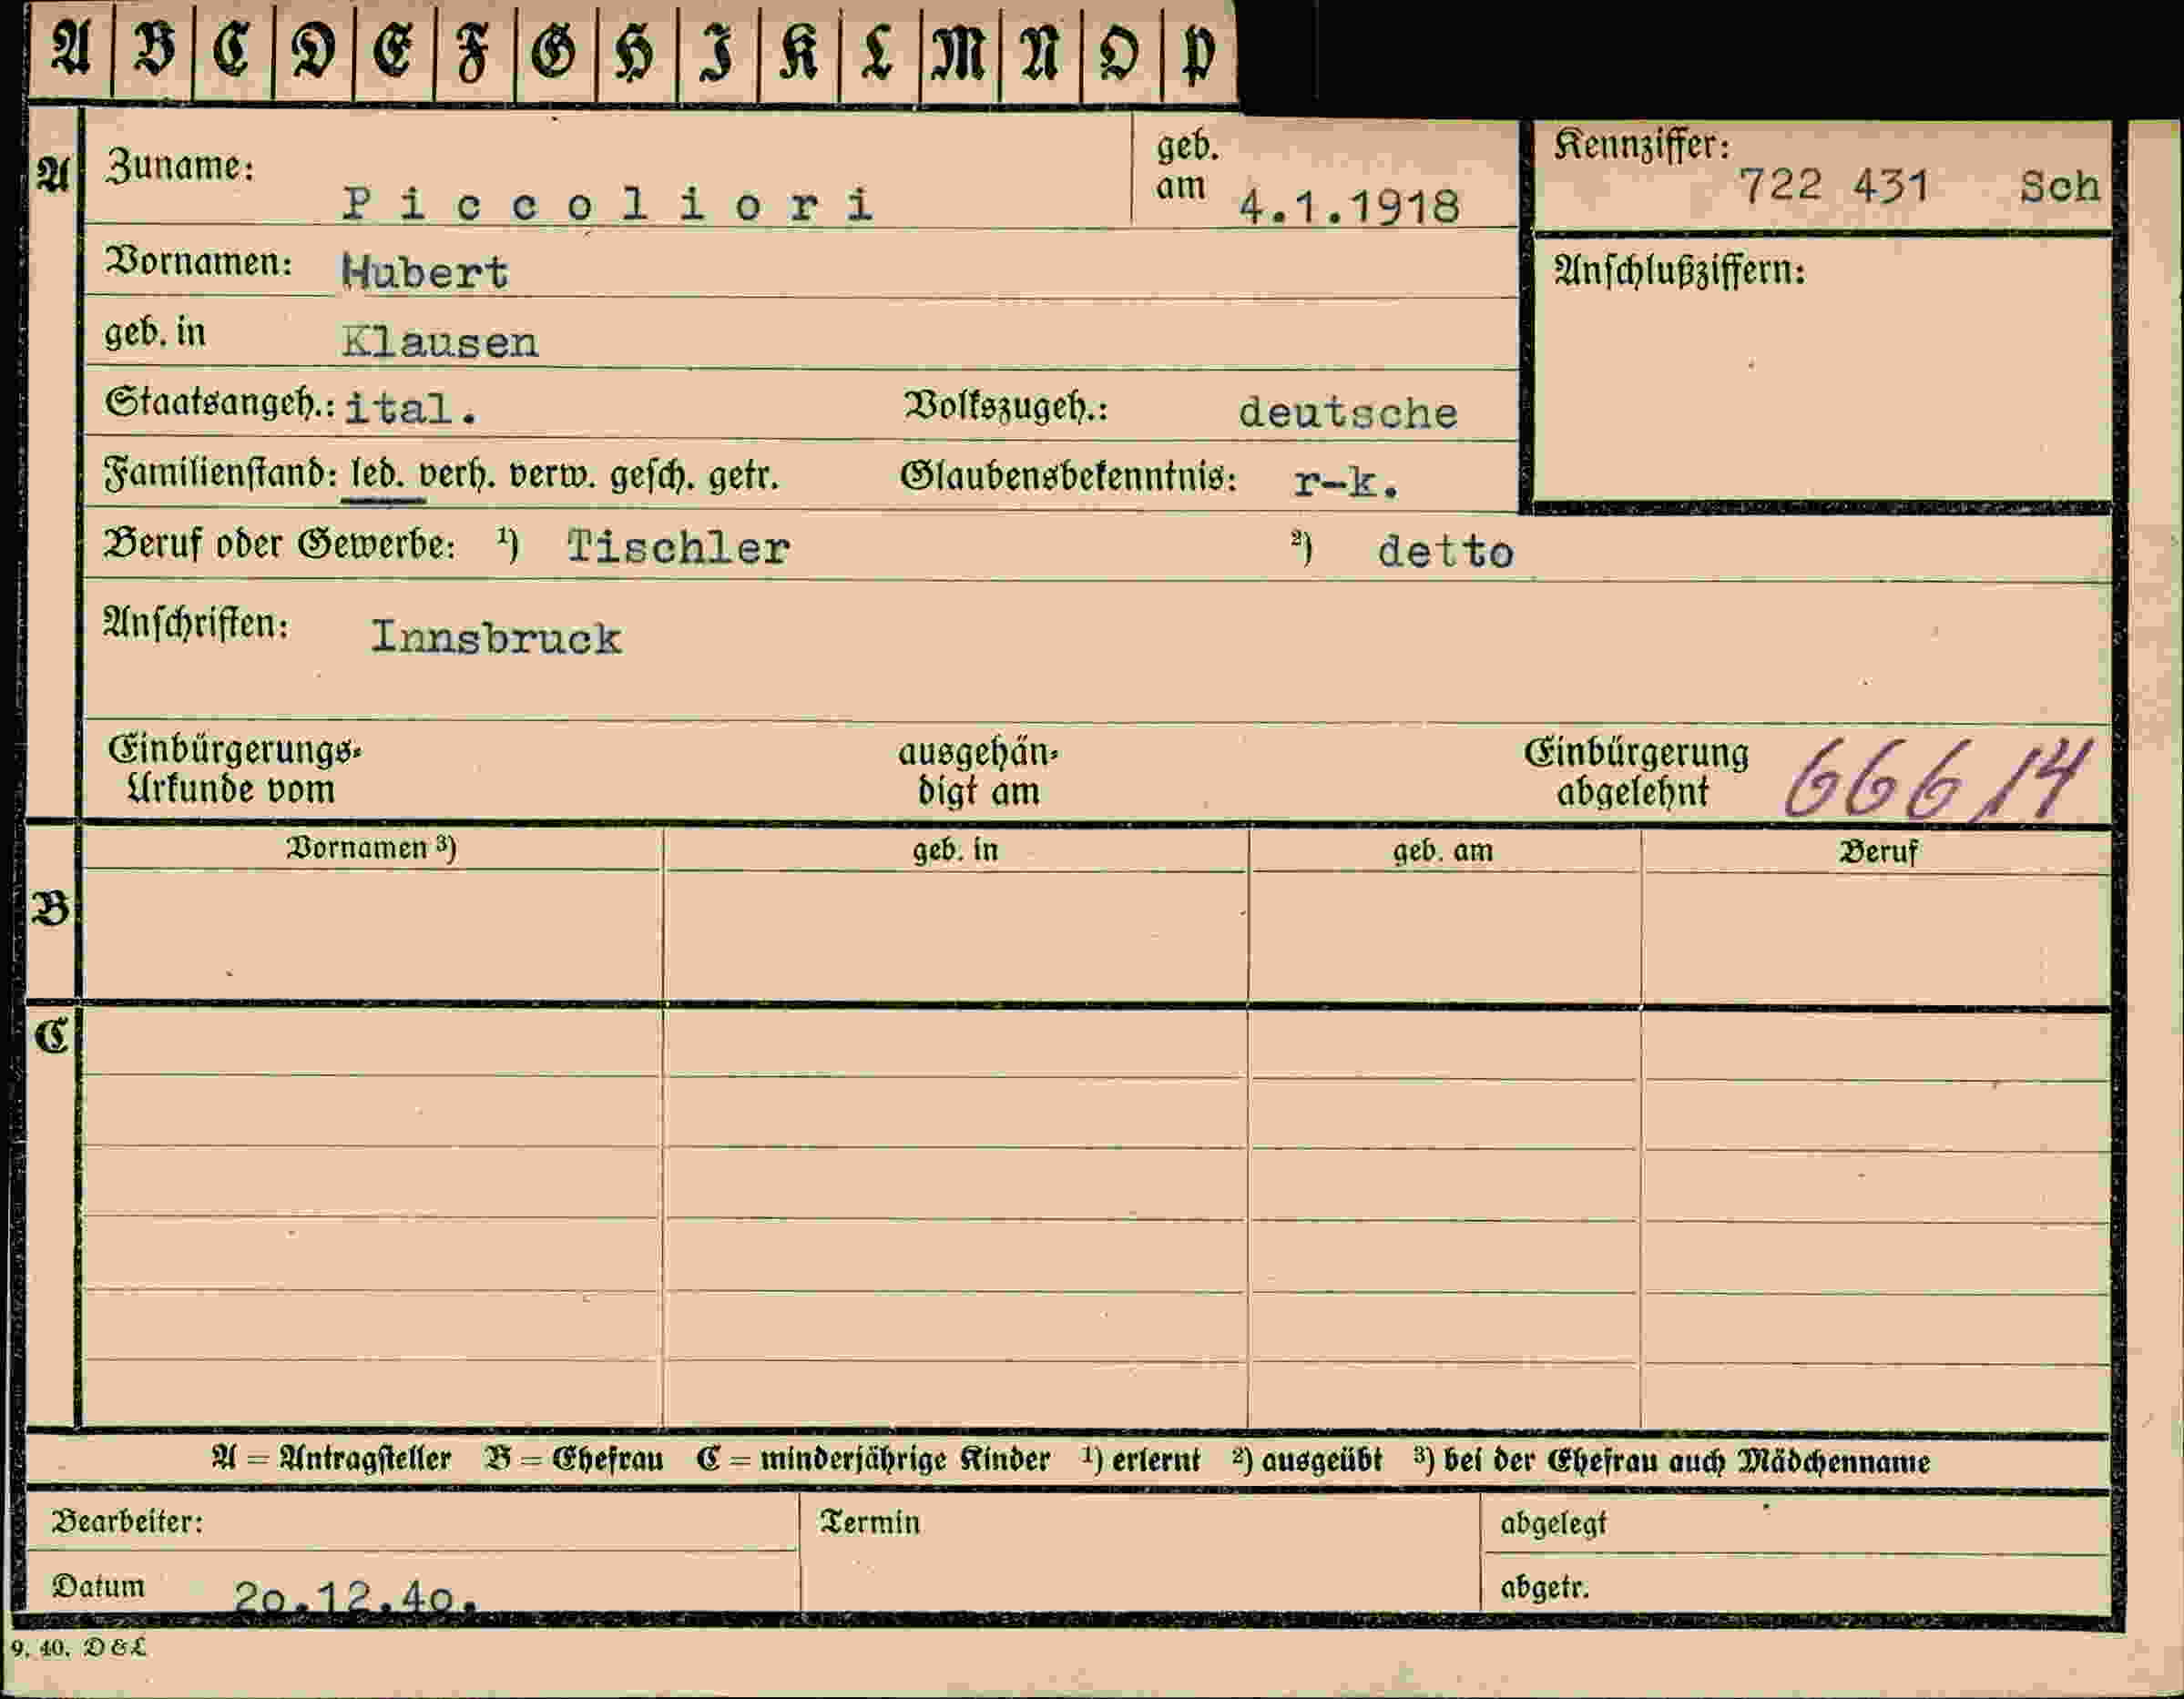 A B C D E F G H I K L M N O P
A Zuname: Piccoliori geb. am 4.1.1918 Kennziffer: 722 431 Sch
Vornamen: Hubert Anschlußziffern:
geb. in Klausen
Staatsangeh.: ital. Volkszugeh.: deutsche
Familienstand: led. verh. verw. gesch. getr. Glaubensbekenntnis: r-k.
Beruf oder Gewerbe: ¹) Tischler ²) detto
Anschriften: Innsbruck
Einbürgerungs- ausgehän- Einbürgerung 66614
Urkunde vom digt am abgelehnt
Vornamen ³) geb. in geb. am Beruf
B
C
A = Antragsteller B = Ehefrau C = minderjährige Kinder ¹) erlernt ²) ausgeübt ³) bei der Ehefrau auch Mädchenname
Bearbeiter: Termin abgelegt
Datum 2o.12.4o. abgetr.
9. 40. D & L